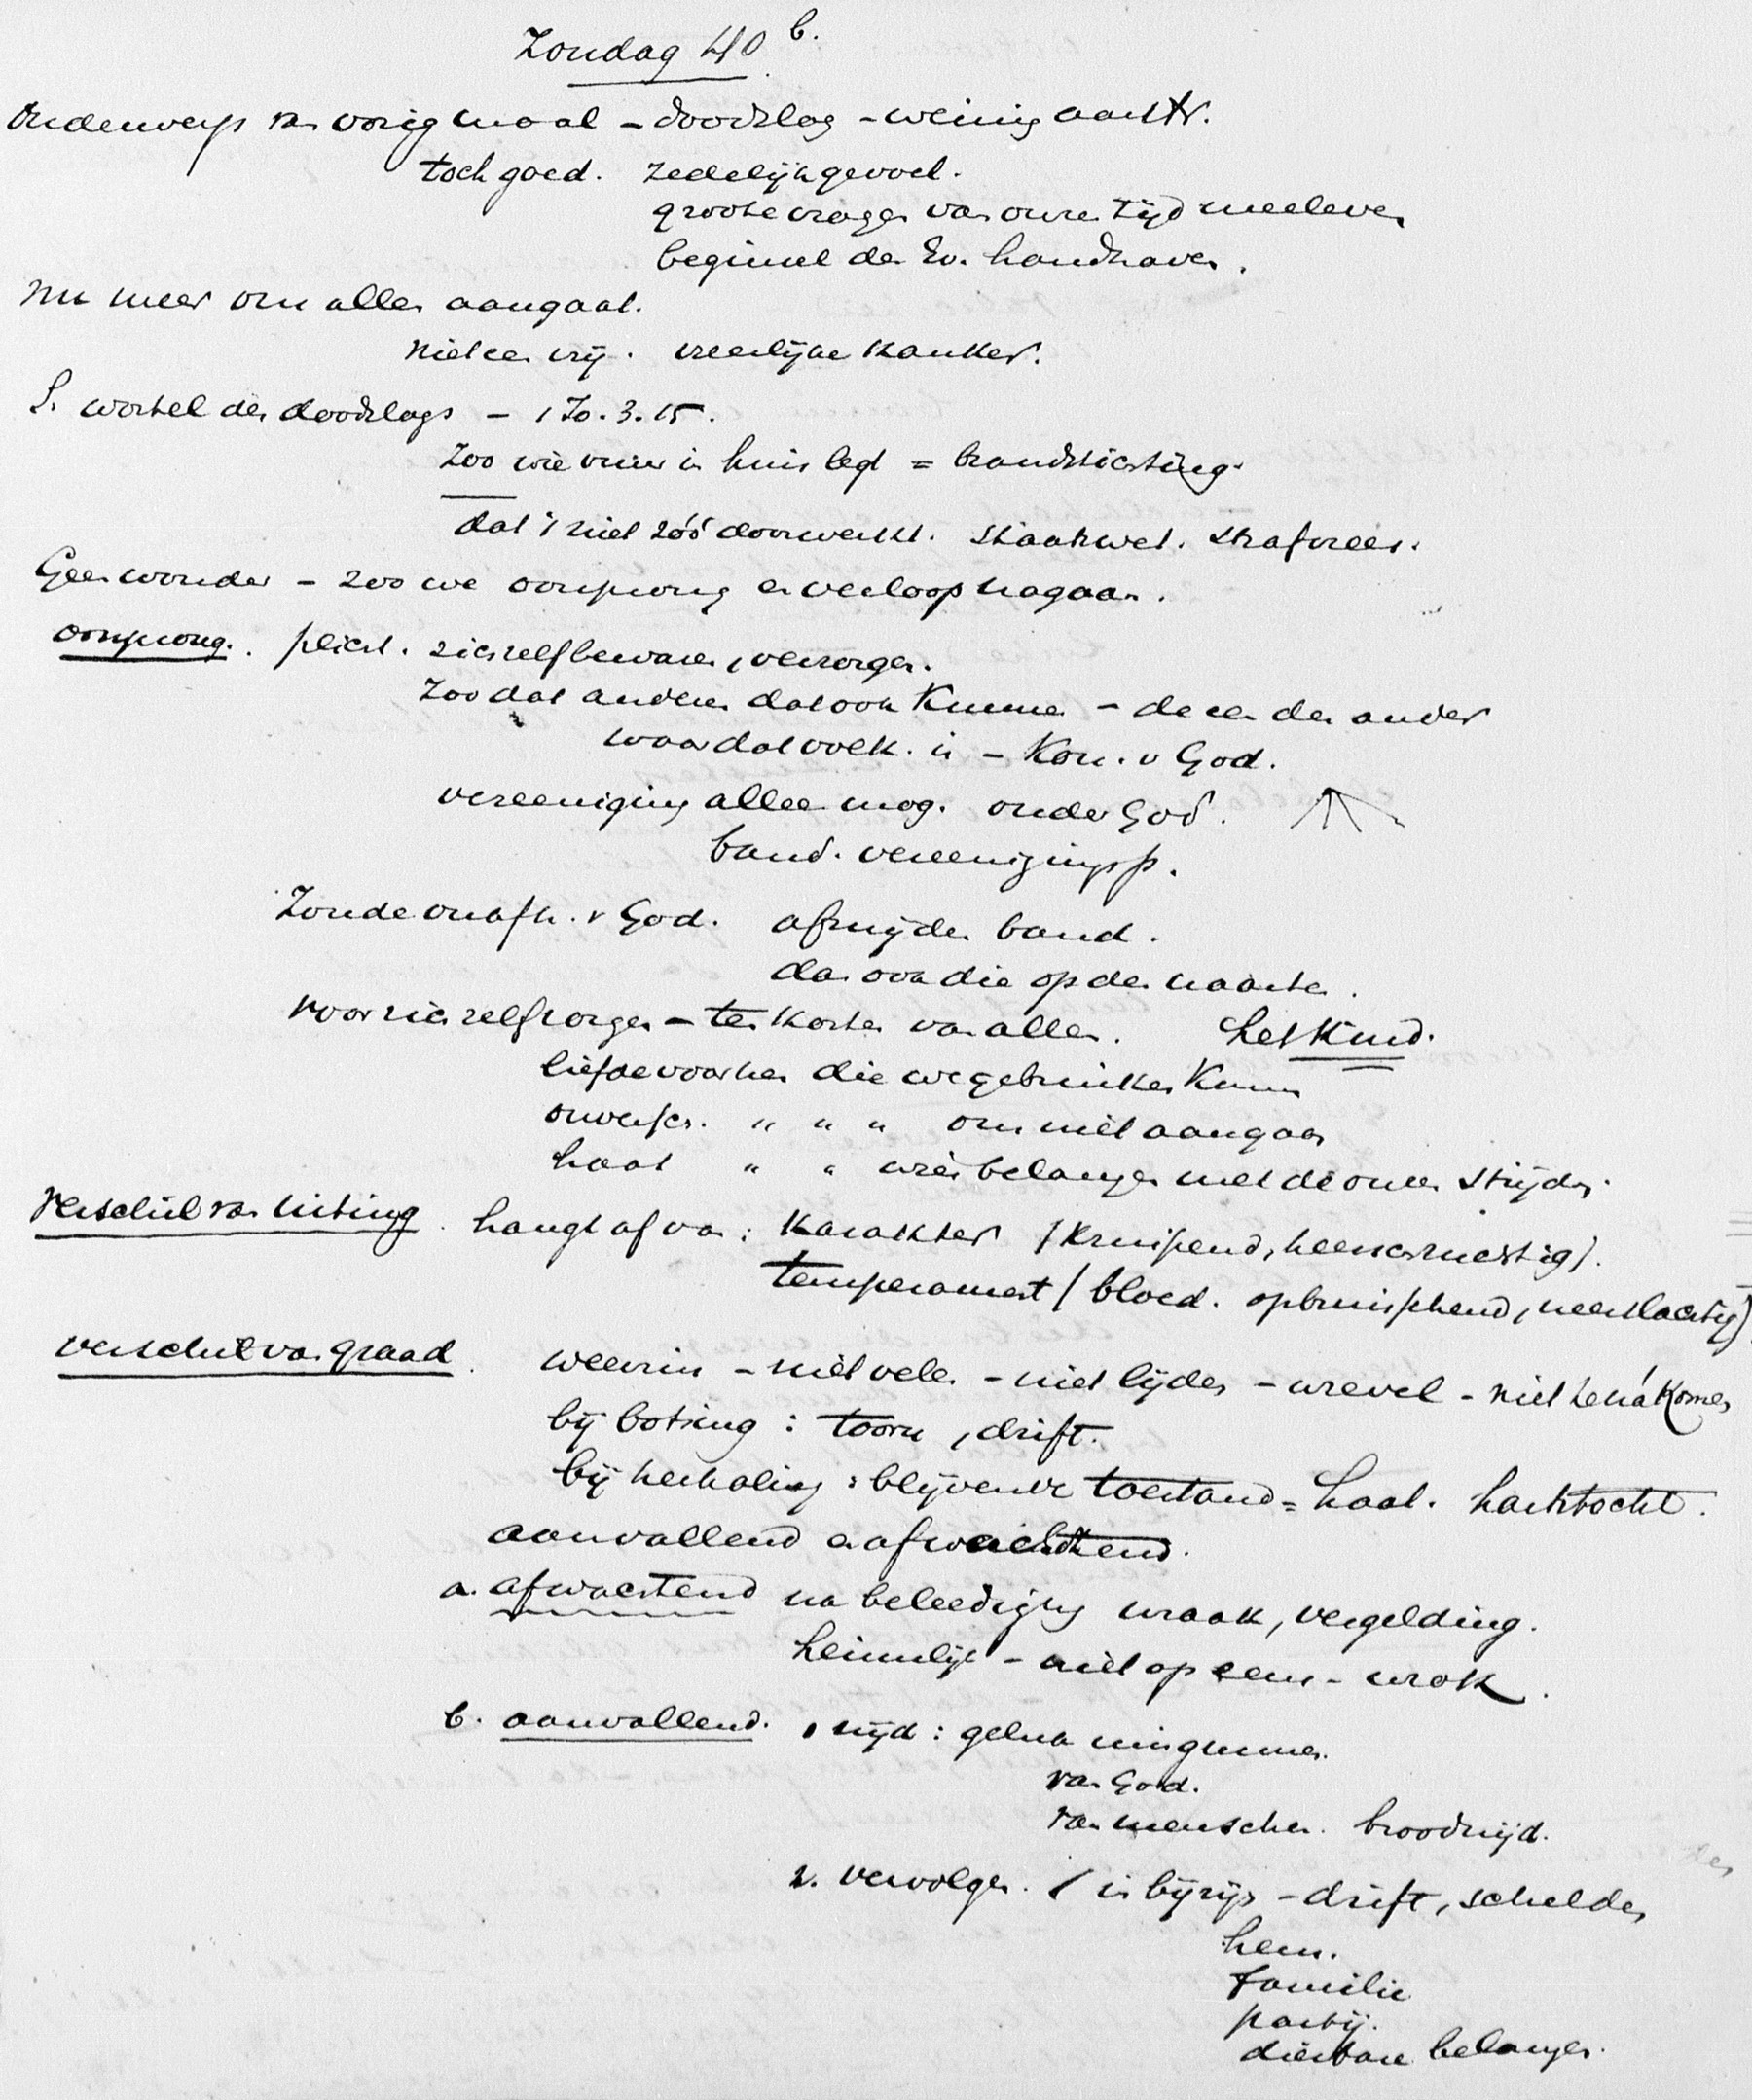 Zondag 40 b.
Onderwerp van vorig maal - doodslag - weinig aantr.
toch goed. zedelijk gevoel.
groote vragen van onzen tijd meeleven
beginsel der Ev. handhaven.
Nu meer ons allen aangaat.
Niet een vrij. vreeslijke kanker.
S. wortel des doodslags - 1 Jo. 3.15.
Zoo wie vuur in huis legt = brandstichting.
dat 't niet zóó doorwerkt. staatswet. strafvrees.
Geen wonder - zoo we oorsprong en verloop nagaan.
oorsprong. plicht. zichzelf bewaren, verzorgen.
Zoodat anderen dat ook kunnen - de een den ander
waar dat volk. is - Kon. v God.
vereeniging alleen mog. onder God.
band. vereenigingsp.
Zonde onafh. v God. afsnijden band.
dan ook die op den naaste.
voor zich zelf zorgen - ten koste van allen. het kind.
liefde voor hen die we gebruiken kunnen
onversch. " " " ons niet aangaan
haat " " wier belangen met de onze strijden.
Verschil van uiting. hangt af van: karakter (kruipend, heerschzuchtig).
temperament (bloed. opbruischend, neerslachtig)
verschil van graad. weerzin - niet velen - niet lijden - wrevel - niet te ná komen
bij botsing: toorn, drift.
bij herhaling: blijvende toestand = haat. hartstocht.
aanvallend en afwachtend.
a. afwachtend na beleediging wraak, vergelding.
heimelijk - niet op eens - wrok.
b. aanvallend. 1 nijd: geluk misgunnen.
van God.
van menschen. broodnijd.
2. vervolgen. ( in bijzijn - drift, schelden
hem.
familie
partij.
dierbare belangen.